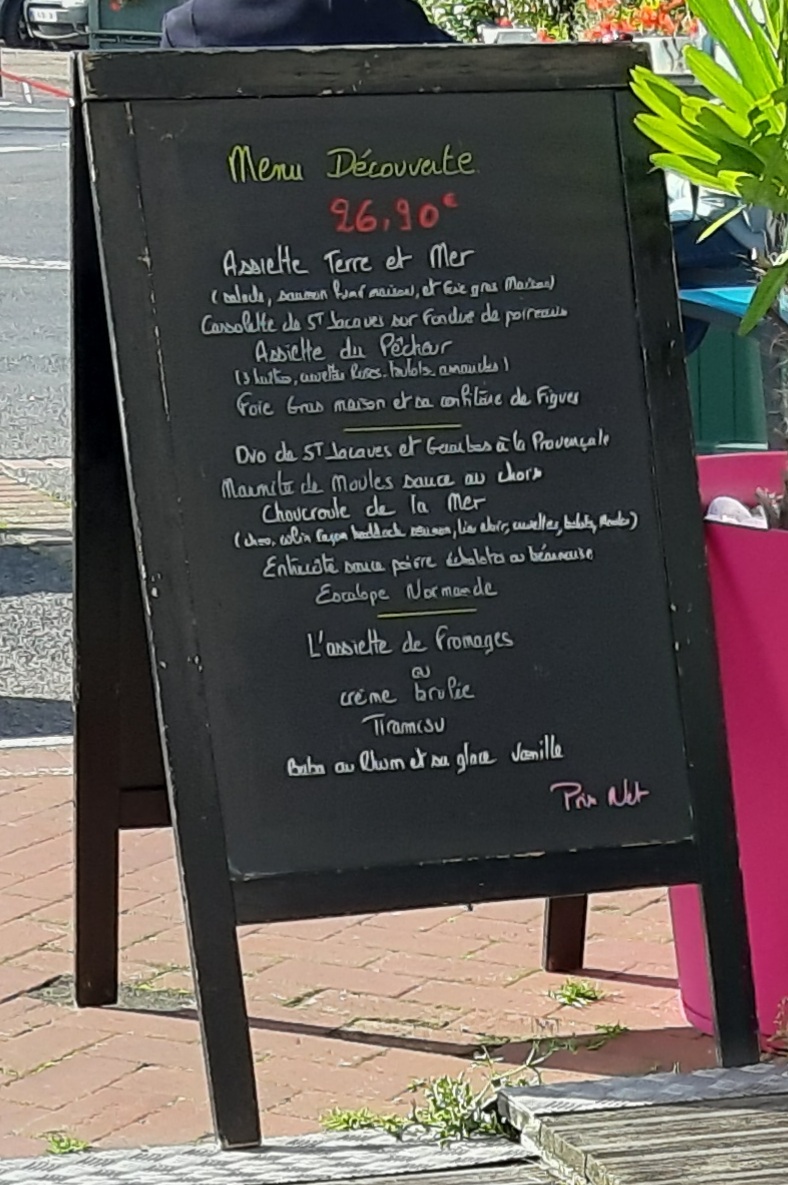 Menu Découverte
26,90€
Assiette Terre et Mer
(salade, saumon fumé maison, et Foie gras Maison)
Cassolette de ST Jacques sur Fondue de poireaux
Assiette du Pêcheur
(3 huitres, crevettes Roses, bulots, amandes)
Foie Gras maison et sa confiture de Figues
Duo de ST Jacques et Gambas à la Provençale
Marmite de Moules sauce au choix
Choucroute de la Mer
(choo, colin façon haddock, saumon, lieu noir, crevettes, bulots, Moules)
Entrecôte sauce poivre échalotes ou béarnaise
Escalope Normande
L'assiette de Fromages
ou
crème brulée
Tiramisu
Baba au Rhum et sa glace Vanille
Prix Net